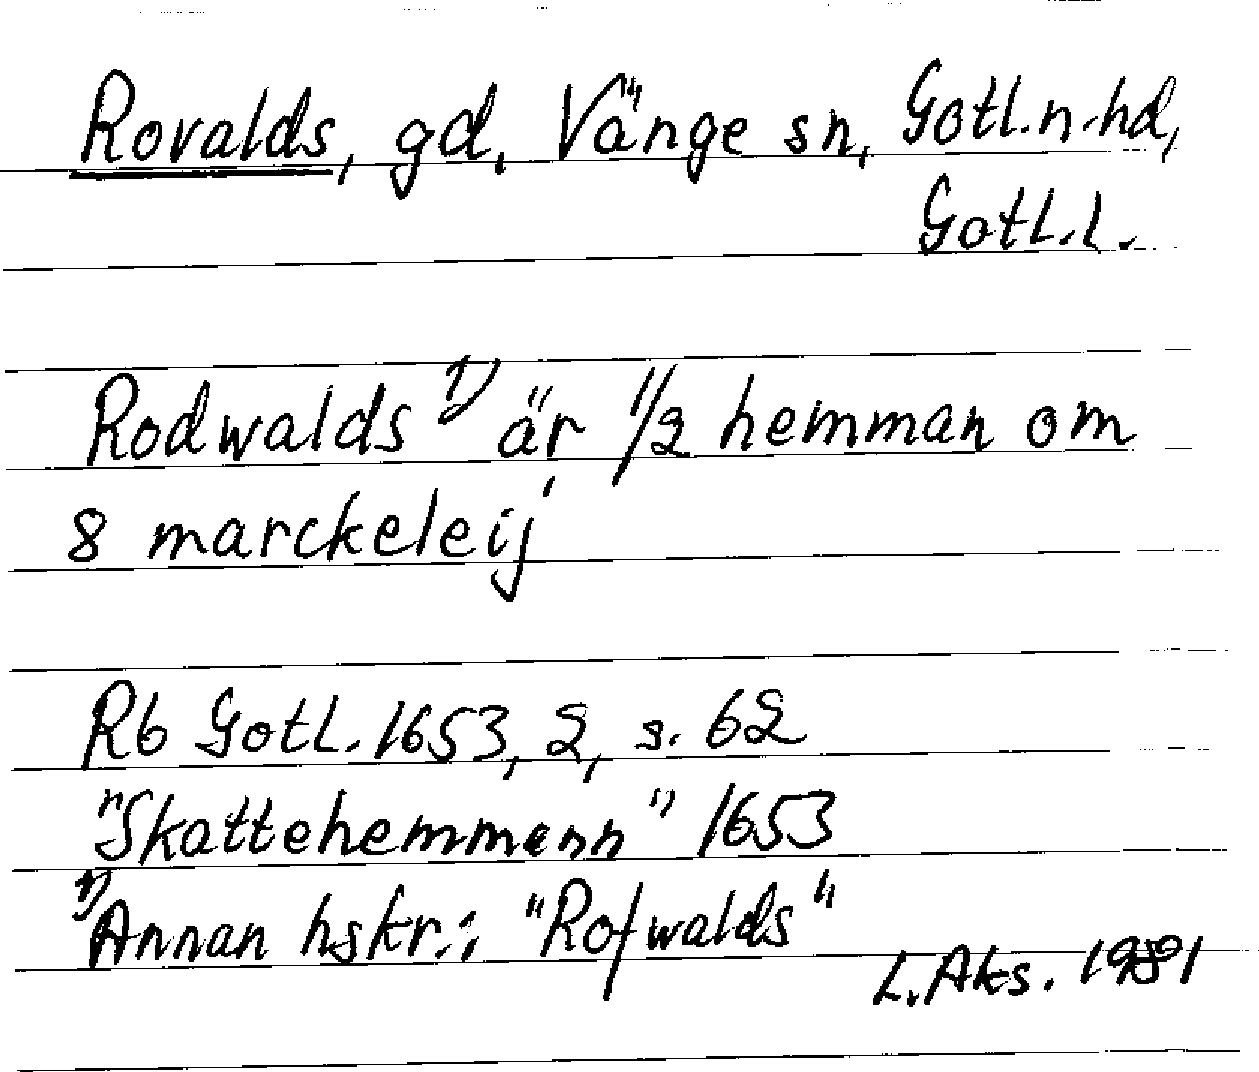 Rovalds, gd, Vänge sn, Gotl.n.hd,
Gotl.l.
Rodwalds 1) är 1/2 hemman om
8 marckeleij
Rb Gotl. 1653, 2, s. 62
"Skattehemmenn" 1653
1) Annan hskr.: "Rofwalds"
L. Aks. 1981